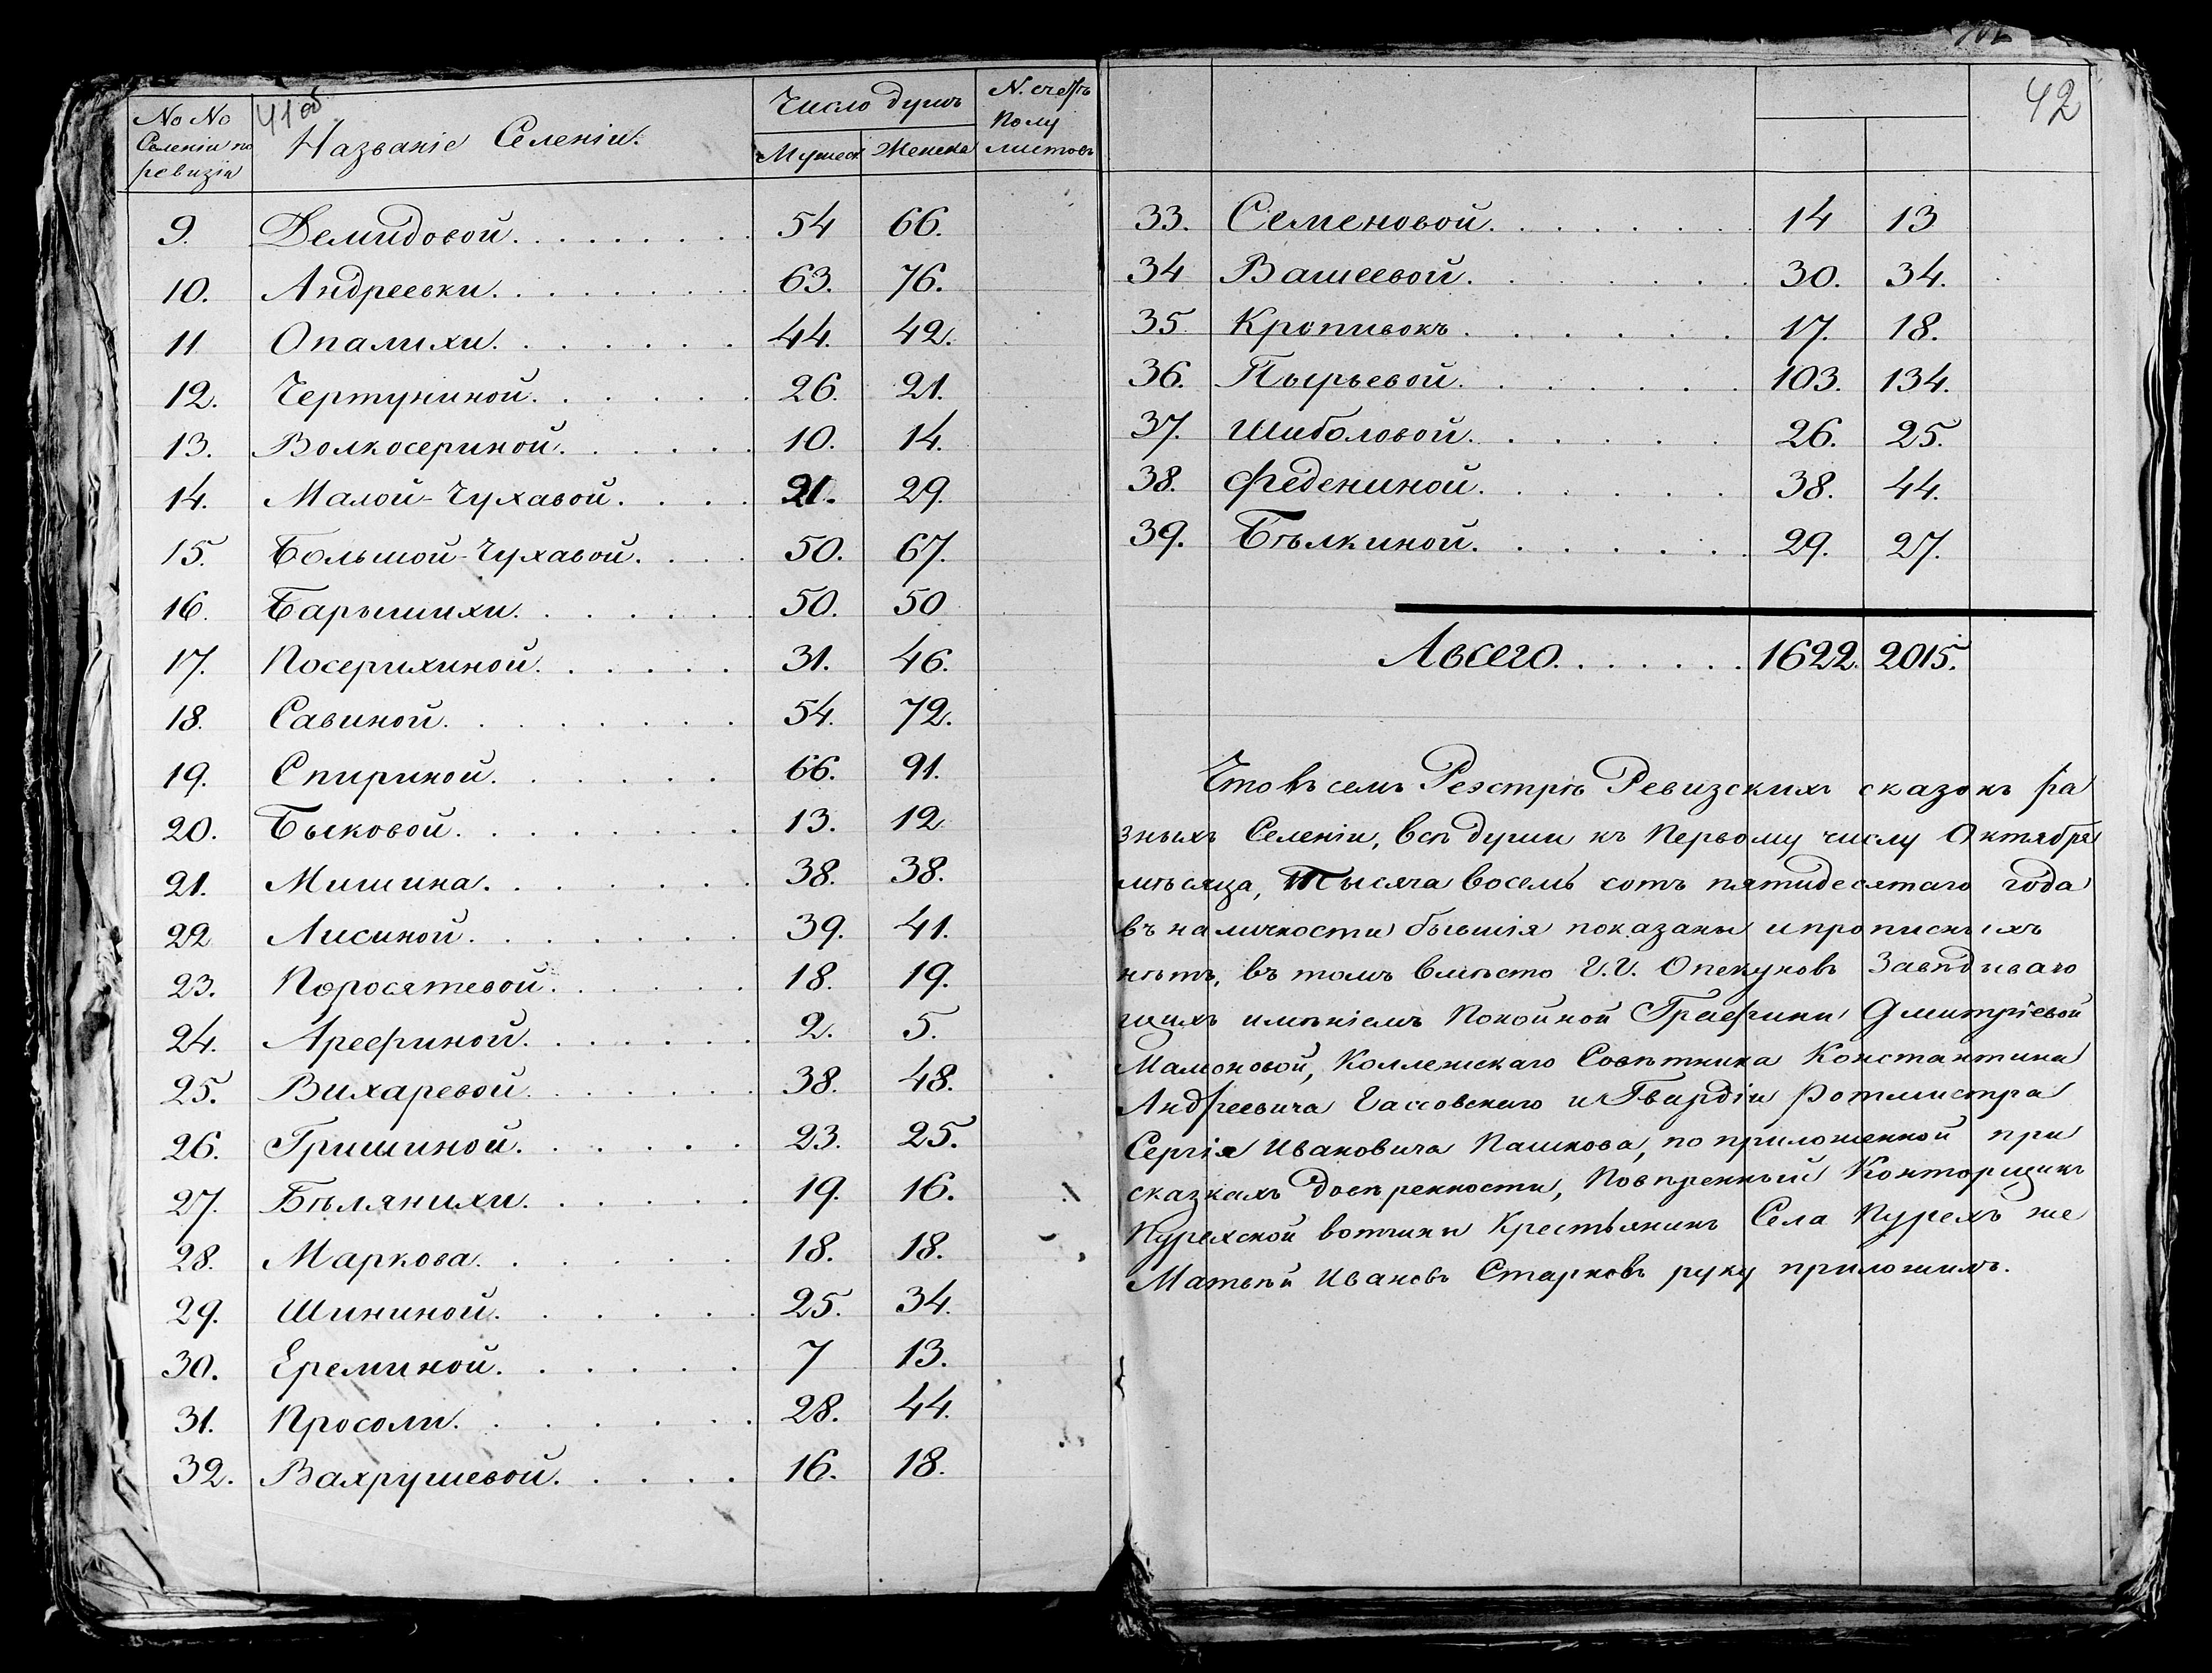 41об
№ №
Селеніи по
ревизіи
Названіе Селеніи.
Число душъ
Мужеск Женска
N. счетъ
полу
листовъ
9. Демидовой. 54 66.
10. Андреевки. 63. 76.
11 Опалихи. 44. 42.
12. Чертуниной. 26. 21.
13. Волкосериной. 10. 14.
14. Малой-Чухавой. 21. 29.
15. Большой-Чухавой. 50. 67.
16. Барышихи. 50. 50
17. Посерихиной. 31. 46.
18. Савиной. 54. 72.
19. Спириной. 66. 91.
20. Быковой. 13. 12
21. Мишина. 38. 38.
22 Лисиной. 39. 41.
23. Поросятевой. 18. 19.
24. Арефиной. 2. 5.
25. Вихаревой. 38. 48.
26. Гришиной. 23. 25.
27. Бѣлянихи. 19. 16.
28. Маркова. 18. 18.
29. Шининой. 25. 34.
30. Ереминой. 7 13.
31. Просоли. 28. 44.
32. Вахрушевой. 16. 18.
42
33. Семеновой. 14 13
34 Вашеевой. 30. 34.
35 Кропивокъ. 17. 18.
36. Пырьевой. 103. 134.
37. Шиболовой. 26. 25.
38. Федениной. 38. 44.
39. Бѣлкиной. 29. 27.
Авсего. 1622. 2015.
Что въ семъ Реэстрѣ Ревизскихъ сказокъ ра
зныхъ Селеніи, всѣ души къ Первому числу Октября
мѣсяца, Тысяча восемь сотъ пятидесятаго года
въ наличности бывшія показаны и прописныхъ
нѣтъ, въ томъ вмѣсто Г.Г. Опекуновъ Завѣдываю
щихъ имѣніемъ Покойной Графини Дмитріевой
Мамоновой, Коллежскаго Совѣтника Константина
Андреевича Гассовскаго и Гвардіи Ротмистра
Сергія Ивановича Пашкова, по приложенной при
сказкахъ довѣренности, Повѣренный Конторщикъ
Пурехской вотчины Крестьянинъ Села Пурехъ же
Матвѣй Ивановъ Старковъ руку приложилъ.